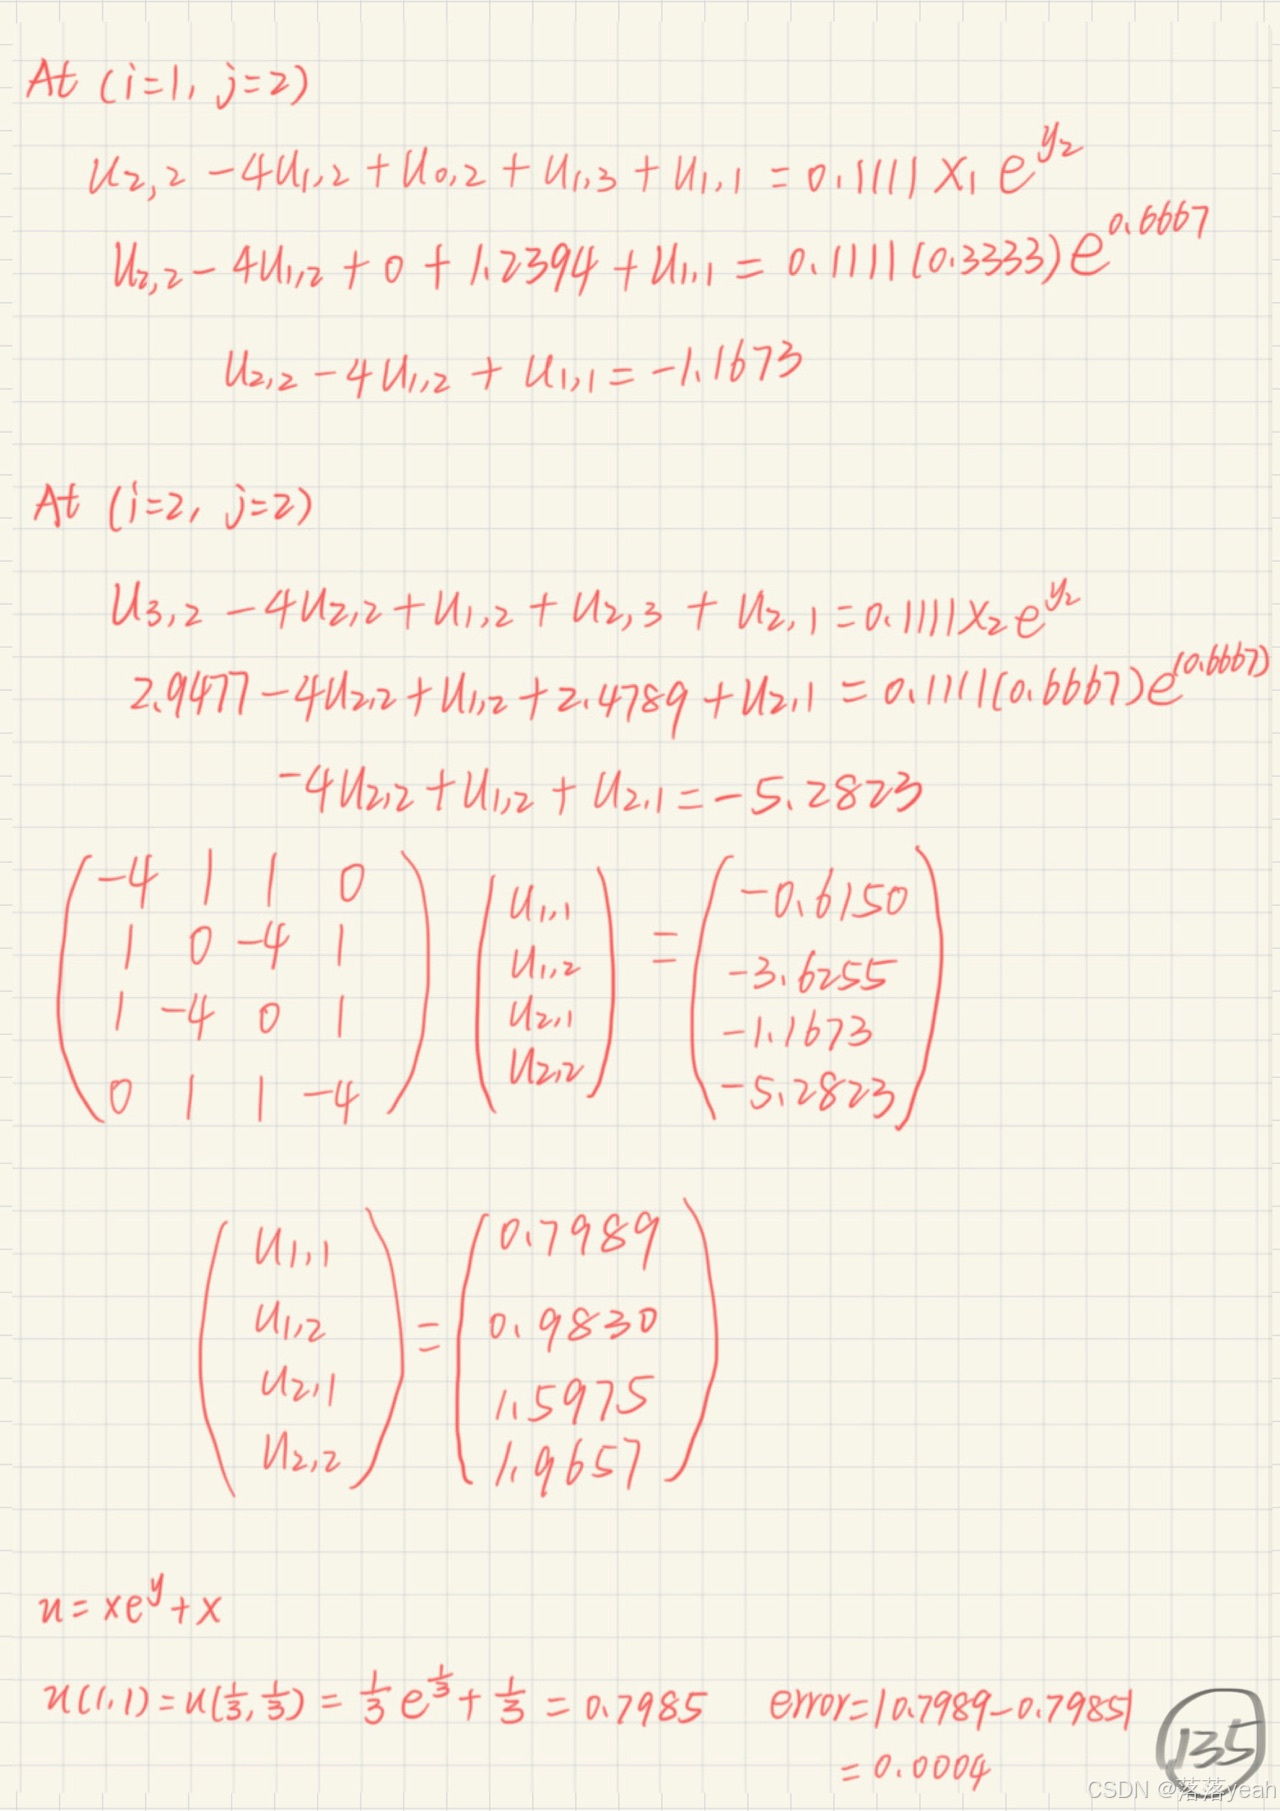 At (i=1, j=2)
u₂,₂ - 4u₁,₂ + u₀,₂ + u₁,₃ + u₁,₁ = 0.1111 x₁ e^y₂
u₂,₂ - 4u₁,₂ + 0 + 1.2394 + u₁,₁ = 0.1111(0.3333)e^0.6667
u₂,₂ - 4u₁,₂ + u₁,₁ = -1.1673
At (i=2, j=2)
u₃,₂ - 4u₂,₂ + u₁,₂ + u₂,₃ + u₂,₁ = 0.1111x₂e^y₂
2.9477 - 4u₂,₂ + u₁,₂ + 2.4789 + u₂,₁ = 0.1111(0.6667)e^(0.6667)
-4u₂,₂ + u₁,₂ + u₂,₁ = -5.2823
-4 1 1 0 u₁,₁ -0.6150
1 0 -4 1 u₁,₂ = -3.6255
1 -4 0 1 u₂,₁ -1.1673
0 1 1 -4 u₂,₂ -5.2823
u₁,₁ 0.7989
u₁,₂ = 0.9830
u₂,₁ 1.5975
u₂,₂ 1.9657
u = xe^y + x
u(1,1) = u(1/3, 1/3) = 1/3 e^1/3 + 1/3 = 0.7985 error = |0.7989 - 0.7985|
= 0.0004
135
CSDN @落落yeah